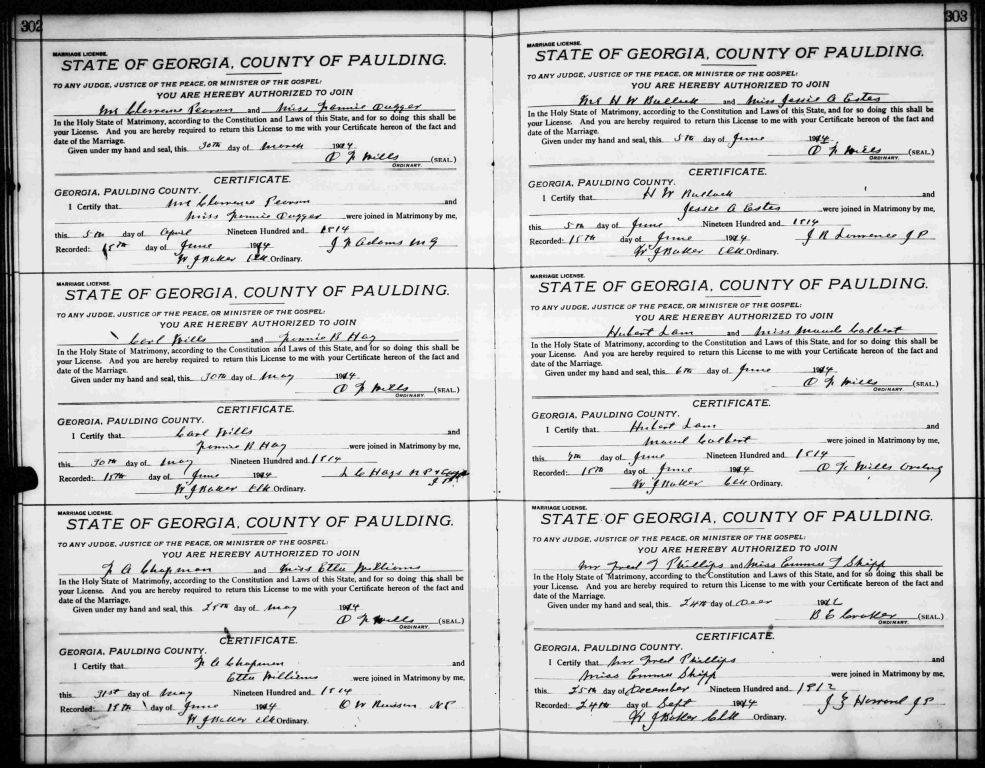 302
MARRIAGE LICENSE.
STATE OF GEORGIA, COUNTY OF PAULDING.
TO ANY JUDGE, JUSTICE OF THE PEACE, OR MINISTER OF THE GOSPEL:
YOU ARE HEREBY AUTHORIZED TO JOIN
Mr Clarence and Miss Fannie Dugger
In the Holy State of Matrimony, according to the Constitution and Laws of this State, and for so doing this shall be
your License. And you are hereby required to return this License to me with your Certificate hereon of the fact and
date of the Marriage.
Given under my hand and seal, this 30th day of March 1914
O F Wills (SEAL.)
ORDINARY.
CERTIFICATE.
GEORGIA, PAULDING COUNTY.
I Certify that Mr Clarence and
Miss Fannie Dugger were joined in Matrimony by me,
this 5th day of April Nineteen Hundred and 1914
Recorded: 15th day of June 1914 J F Adams M G
W J Baker Clk Ordinary.
MARRIAGE LICENSE.
STATE OF GEORGIA, COUNTY OF PAULDING.
TO ANY JUDGE, JUSTICE OF THE PEACE, OR MINISTER OF THE GOSPEL:
YOU ARE HEREBY AUTHORIZED TO JOIN
Carl Wills and Fannie B Hay
In the Holy State of Matrimony, according to the Constitution and Laws of this State, and for so doing this shall be
your License. And you are hereby required to return this License to me with your Certificate hereon of the fact and
date of the Marriage.
Given under my hand and seal, this 30th day of May 1914
O F Wills (SEAL.)
ORDINARY.
CERTIFICATE.
GEORGIA, PAULDING COUNTY.
I Certify that Carl Wills and
Fannie B Hay were joined in Matrimony by me,
this 30th day of May Nineteen Hundred and 1914
Recorded: 15th day of June 1914 L C Hays N P &
W J Baker Clk Ordinary.
MARRIAGE LICENSE.
STATE OF GEORGIA, COUNTY OF PAULDING.
TO ANY JUDGE, JUSTICE OF THE PEACE, OR MINISTER OF THE GOSPEL:
YOU ARE HEREBY AUTHORIZED TO JOIN
F A Chapman and Miss Etta Williams
In the Holy State of Matrimony, according to the Constitution and Laws of this State, and for so doing this shall be
your License. And you are hereby required to return this License to me with your Certificate hereon of the fact and
date of the Marriage.
Given under my hand and seal, this 28th day of May 1914
O F Wills (SEAL.)
ORDINARY.
CERTIFICATE.
GEORGIA, PAULDING COUNTY.
I Certify that F A Chapman and
Etta Williams were joined in Matrimony by me,
this 31st day of May Nineteen Hundred and 1914
Recorded 15th day of June 1914 O W NP
W J Baker Clk Ordinary.
303
MARRIAGE LICENSE.
STATE OF GEORGIA, COUNTY OF PAULDING.
TO ANY JUDGE, JUSTICE OF THE PEACE, OR MINISTER OF THE GOSPEL:
YOU ARE HEREBY AUTHORIZED TO JOIN
Mr H W Bullock and Miss Jessie A Estes
In the Holy State of Matrimony, according to the Constitution and Laws of this State, and for so doing this shall be
your License. And you are hereby required to return this License to me with your Certificate hereon of the fact and
date of the Marriage.
Given under my hand and seal, this 5th day of June 1914
O F Wills (SEAL.)
ORDINARY.
CERTIFICATE.
GEORGIA, PAULDING COUNTY.
I Certify that H W Bullock and
Jessie A Estes were joined in Matrimony by me,
this 5th day of June Nineteen Hundred and 1914
Recorded: 15th day of June 1914 J R Lawrence J P
W J Baker Clk Ordinary.
MARRIAGE LICENSE.
STATE OF GEORGIA, COUNTY OF PAULDING.
TO ANY JUDGE, JUSTICE OF THE PEACE, OR MINISTER OF THE GOSPEL:
YOU ARE HEREBY AUTHORIZED TO JOIN
Hubert Lam and Miss Maude Colbert
In the Holy State of Matrimony, according to the Constitution and Laws of this State, and for so doing this shall be
your License. And you are hereby required to return this License to me with your Certificate hereon of the fact and
date of the Marriage.
Given under my hand and seal, this 6th day of June 1914
O F Wills (SEAL.)
ORDINARY.
CERTIFICATE.
GEORGIA, PAULDING COUNTY.
I Certify that Hubert Lam and
Maud Colbert were joined in Matrimony by me,
this 7th day of June Nineteen Hundred and 1914
Recorded: 15th day of June 1914 O F Wills Ordinary
W J Baker Clk Ordinary.
MARRIAGE LICENSE.
STATE OF GEORGIA, COUNTY OF PAULDING.
TO ANY JUDGE, JUSTICE OF THE PEACE, OR MINISTER OF THE GOSPEL:
YOU ARE HEREBY AUTHORIZED TO JOIN
Mr Fred T Phillips and Miss Emma F Shipp
In the Holy State of Matrimony, according to the Constitution and Laws of this State, and for so doing this shall be
your License. And you are hereby required to return this License to me with your Certificate hereon of the fact and
date of the Marriage.
Given under my hand and seal, this 24th day of Decr 1912
B E (SEAL.)
ORDINARY.
CERTIFICATE.
GEORGIA, PAULDING COUNTY.
I Certify that Mr Fred Phillips and
Miss Emma Shipp were joined in Matrimony by me,
this 25th day of December Nineteen Hundred and 1912
Recorded: 24th day of Sept 1914 J Z Howard J P
W J Baker Clk Ordinary.